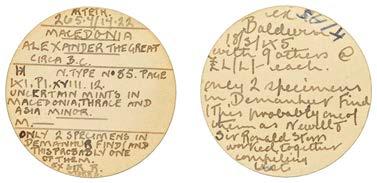 265.4/14.22
MACEDONIA
ALEXANDER THE GREAT
CIRCA B.C.
N. TYPE No 85. PAGE
XI, Pl. XVIII. 12.
UNCERTAIN MINTS IN
MACEDONIA, THRACE AND
ASIA MINOR.
M.
ONLY 2 SPECIMENS IN
DEMANHUR FIND AND
THIS PROBABLY ONE
OF THEM.
Baldwin
with 9 others @
each.
only 2 specimens
in Demanhur Find
This probably one of
them as Newell &
Sir Ronald Storrs
worked together
compiling
list